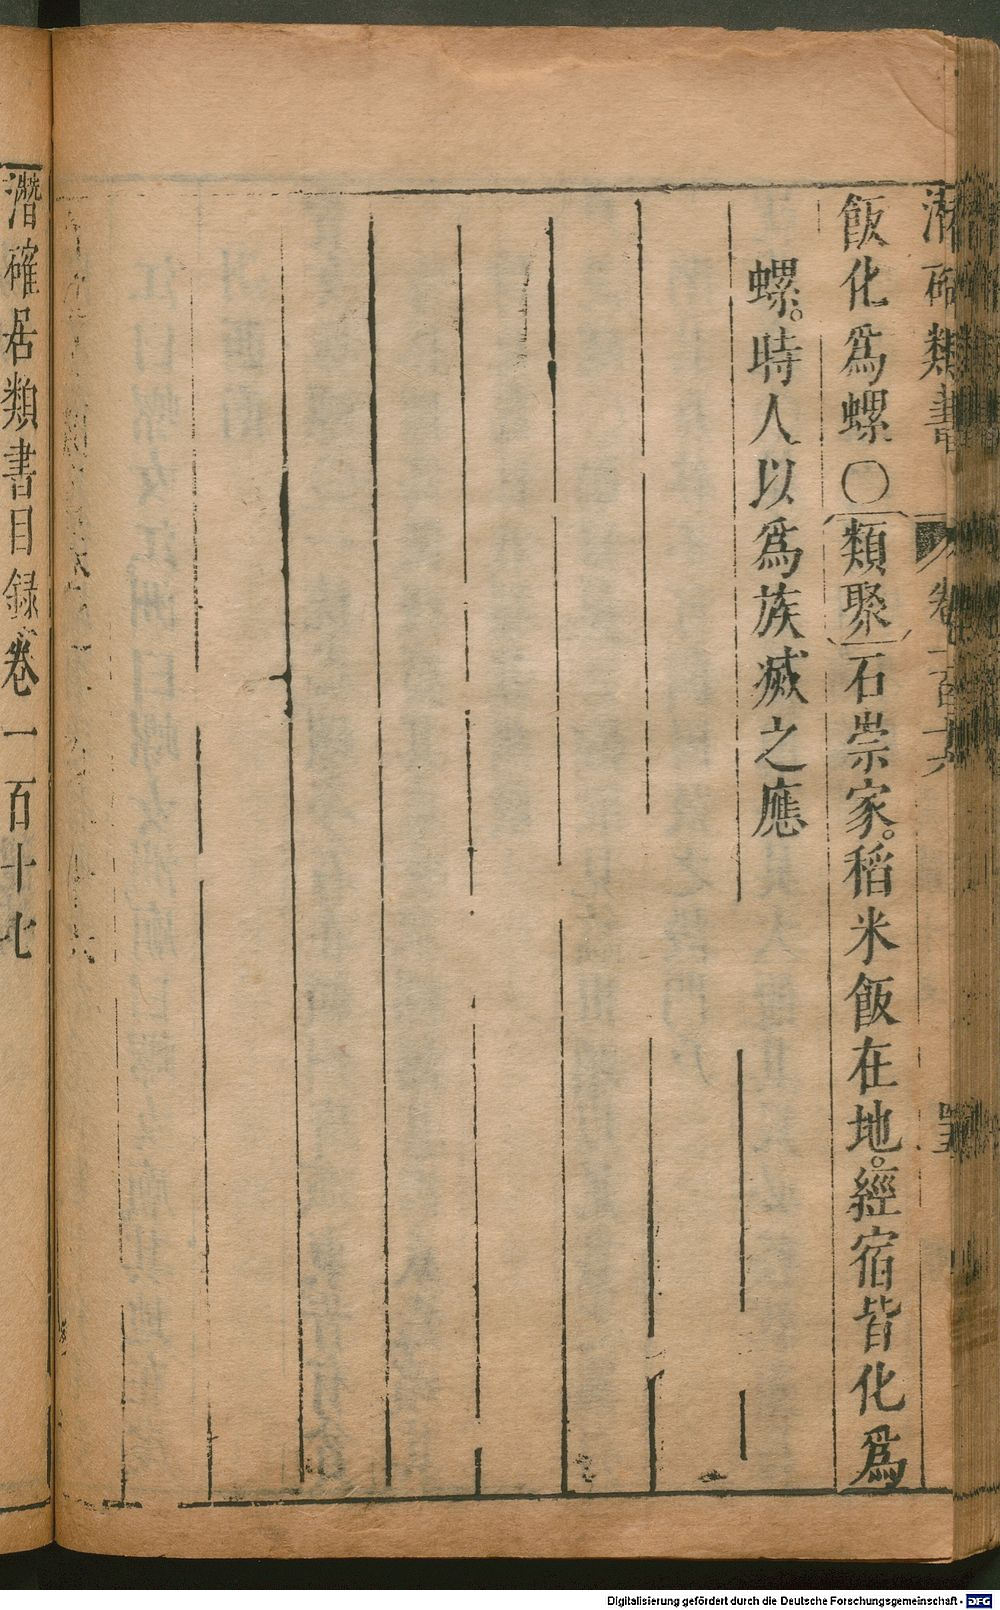 潛確類書 卷一百十六
飯化爲螺〇類聚石崇家。稻米飯在地。經宿皆化爲
螺。時人以爲族滅之應
潛確居類書目録卷一百十七
Digitalisierung gefördert durch die Deutsche Forschungsgemeinschaft - DFG